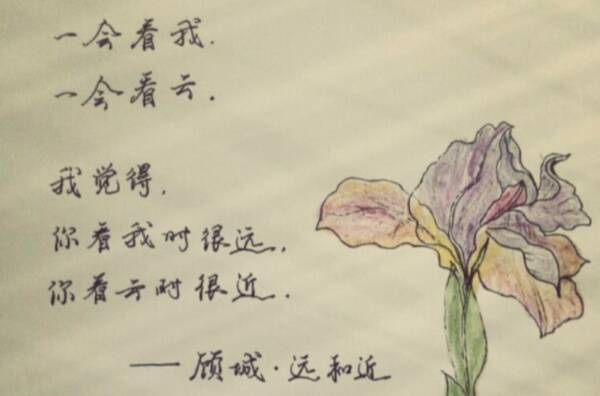 一会看我.
一会看云.
我觉得,
你看我时很远,
你看云时很近.
——顾城·远和近